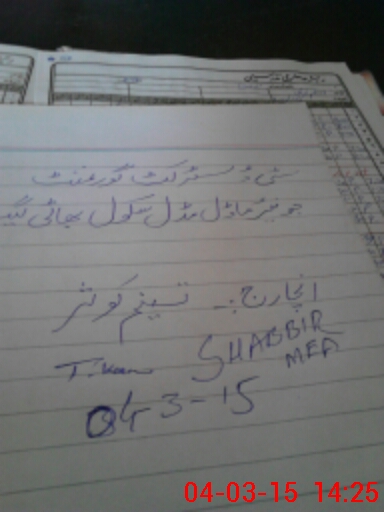 سٹی ڈسٹرکٹ گورنمنٹ
جونیئر ماڈل مڈل سکول بھاٹی گیٹ
انچارج:۔ تسنیم کوثر
SHABBIR
MEA
04 3-15
04-03-15 14:25